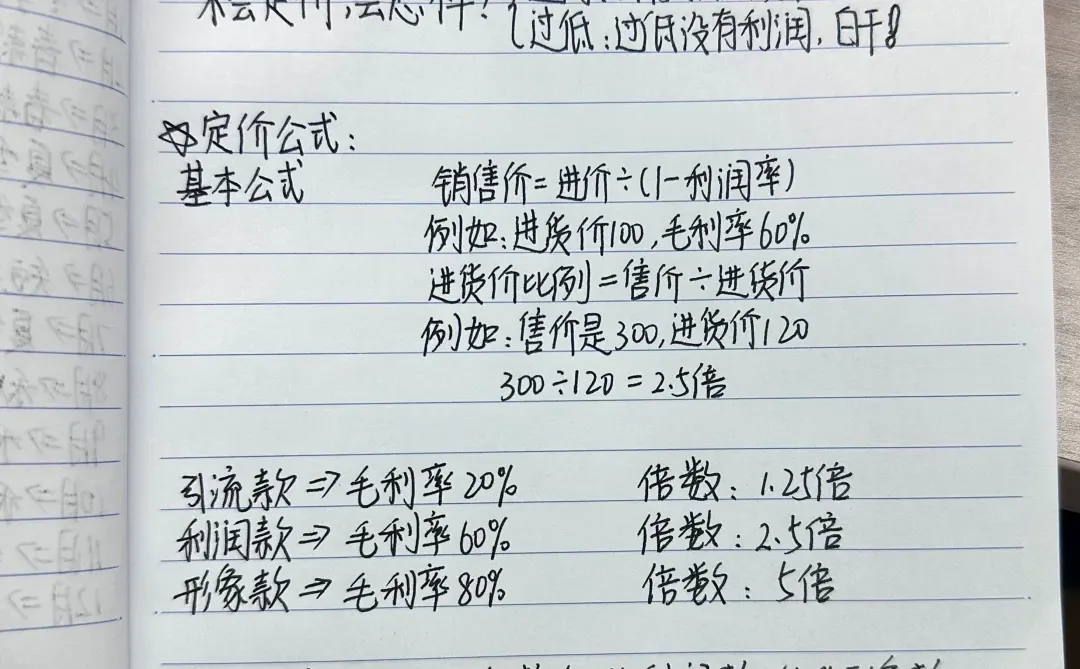 过低:过低没有利润,白干!
☆定价公式:
基本公式 销售价=进价÷(1-利润率)
例如:进货价100,毛利率60%
进货价比例=售价÷进货价
例如:售价是300,进货价120
300÷120=2.5倍
引流款⇒毛利率20% 倍数:1.25倍
利润款⇒毛利率60% 倍数:2.5倍
形象款⇒毛利率80% 倍数:5倍